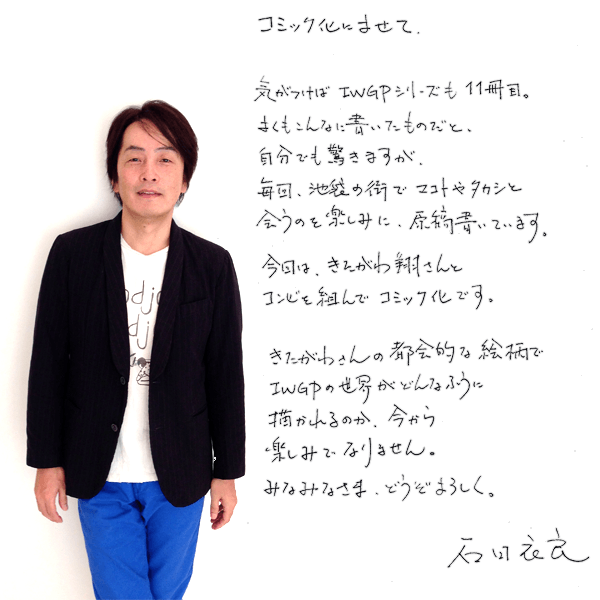 コミック化によせて、
気がつけば IWGPシリーズも 11冊目。
よくもこんなに書いたものだと、
自分でも驚きますが、
毎回、池袋の街で マコトやタカシと
会うのを楽しみに、原稿書いています。
今回は、きたがわ翔さんと
コンビを組んで コミック化です。
きたがわさんの都会的な絵柄で
IWGPの世界が どんなふうに
描かれるのか、今から
楽しみでなりません。
みなみなさま、どうぞよろしく。
石田衣良
odjo
dj